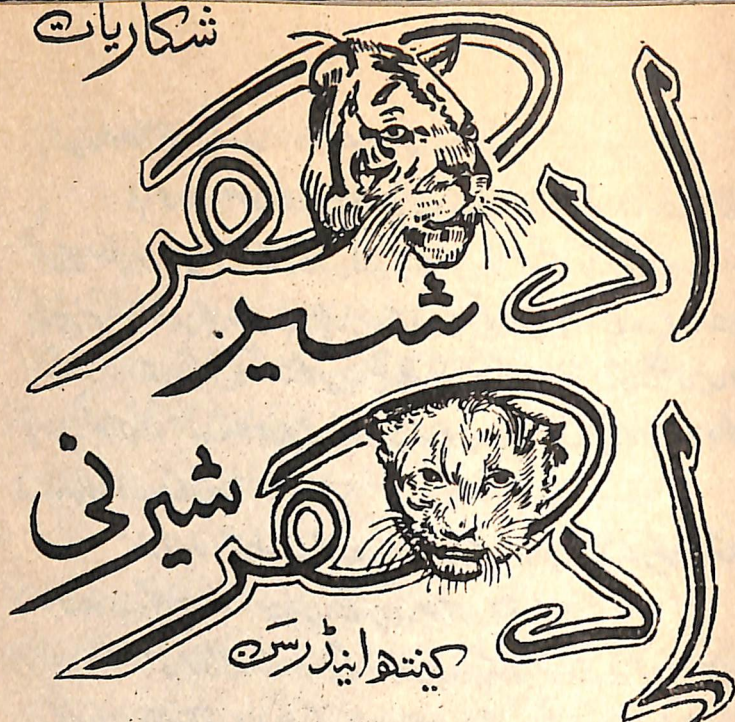 شکاریات
ادھر شیر
اِدھر شیرنی
کینتھ اینڈرسَن